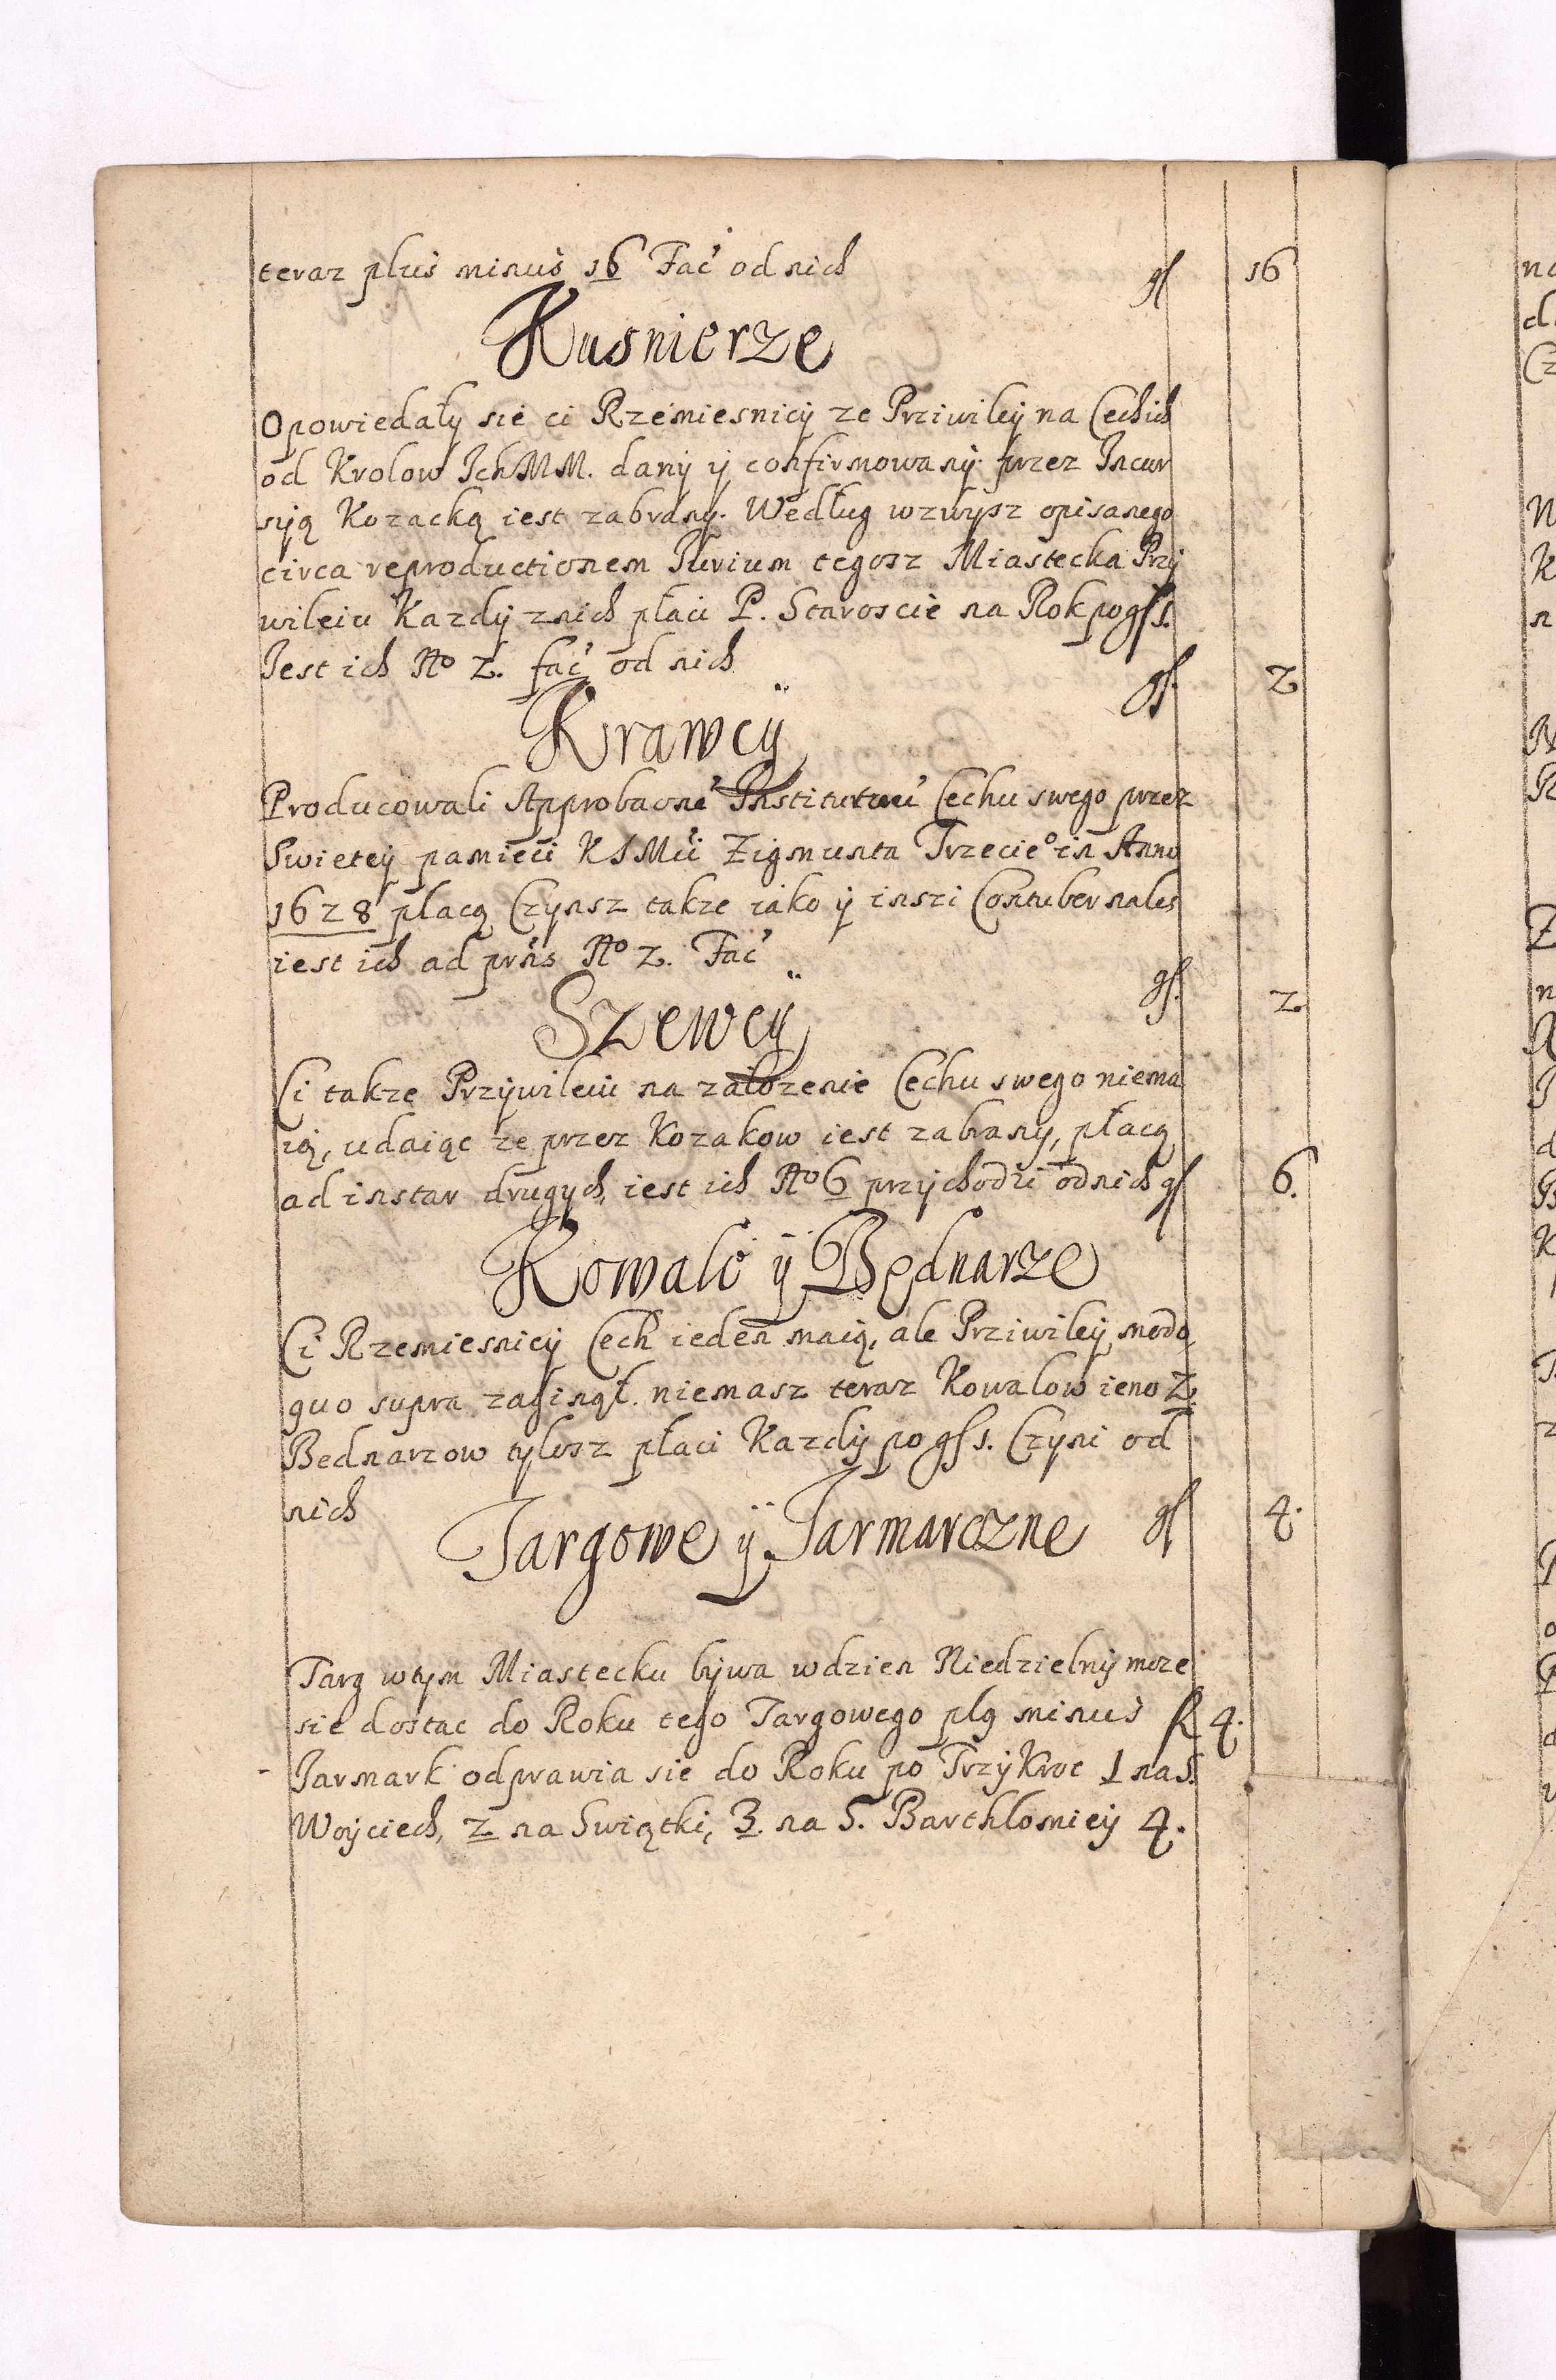 teraz plus minus 16 Fac̃ od nich gſ 16
Kusnierze
Opowiedały sie ci Rzemiesnicÿ ze Prziwileÿ na Cech ich
od Krolow Ich MM. danÿ ÿ confirmowanÿ przez Incur
sÿą Kozacką iest zabrany. Według wzwysz opisanego
circa reproductionem Iurium tegosz Miastecka Przÿ
wileiu Kazdÿ znich płaci P. Staroscie na Rok po gſ 1.
Iest ich No 2. fac̃ od nich gſ. 2
Krawcÿ
Producowali Approbacne Institutui Cechu swego przez
Swieteÿ pamieci K I Mci Zigmunta Trzecieo in Anno
1628 placą Czynsz takze iako ÿ inszi Contubernales
iest ich ad prńs No 2. Fac̃ gſ. 2
Szewcÿ
Ci takze Przÿwileiu na załozenie Cechu swego niema
ią, udaiąc ze przez Kozakow iest zabrany, płacą
ad instar drugych, iest ich No 6 przÿchodzi od nich gſ 6.
Kowale ÿ Bednarze
Ci Rzemiesnicÿ Cech ieden maią, ale Prziwileÿ modo
quo supra zaginął. niemasz teraz Kowalow ieno 2.
Bednarzow tylosz płaci Kazdÿ po gſ 1. Czyni od
nich gſ 4.
Targowe ÿ Jarmarczne
Targ wtym Miastecku bÿwa wdzien Niedzielnÿ moze
sie dostac do Roku tego Targowego plg minus R 4.
Jarmark odprawia sie do Roku po TrzÿKroc 1 na S.
Woÿciech, 2 na Swiątki, 3. na S. Barthlomieÿ 4.